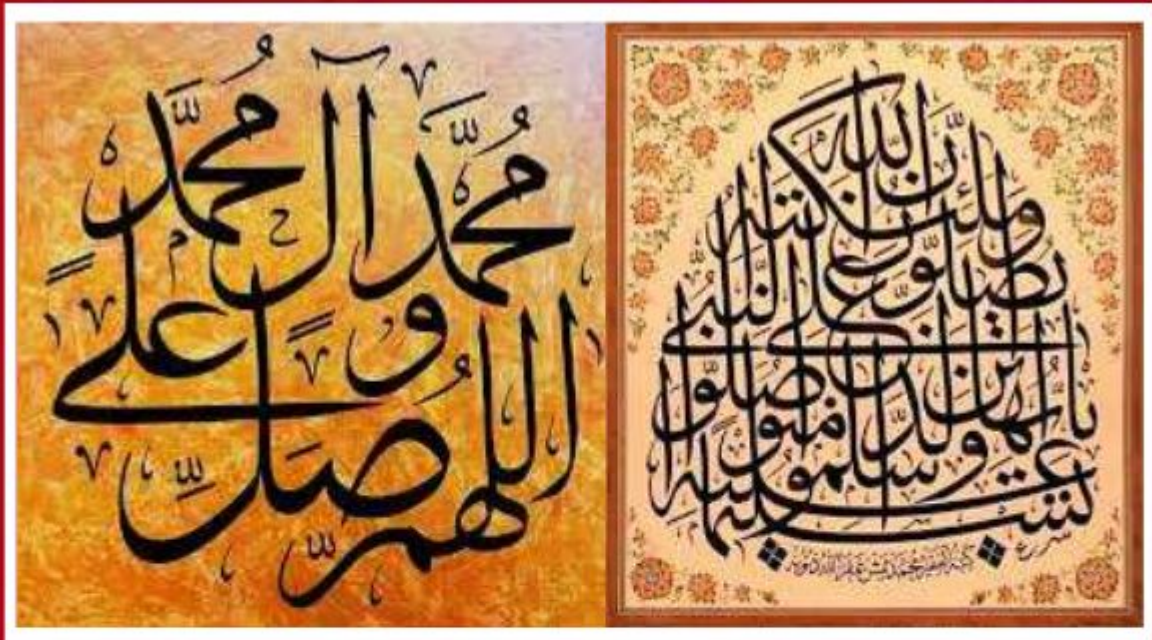 اللهم صل على
محمد و آل محمد
إن الله وملائكته
يصلون على النبي
يا أيها الذين آمنوا صلوا
عليه وسلموا تسليما